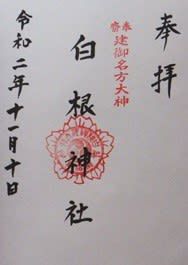 奉拝
奉齋
建御名方大神
白根神社
令和二年十一月十日